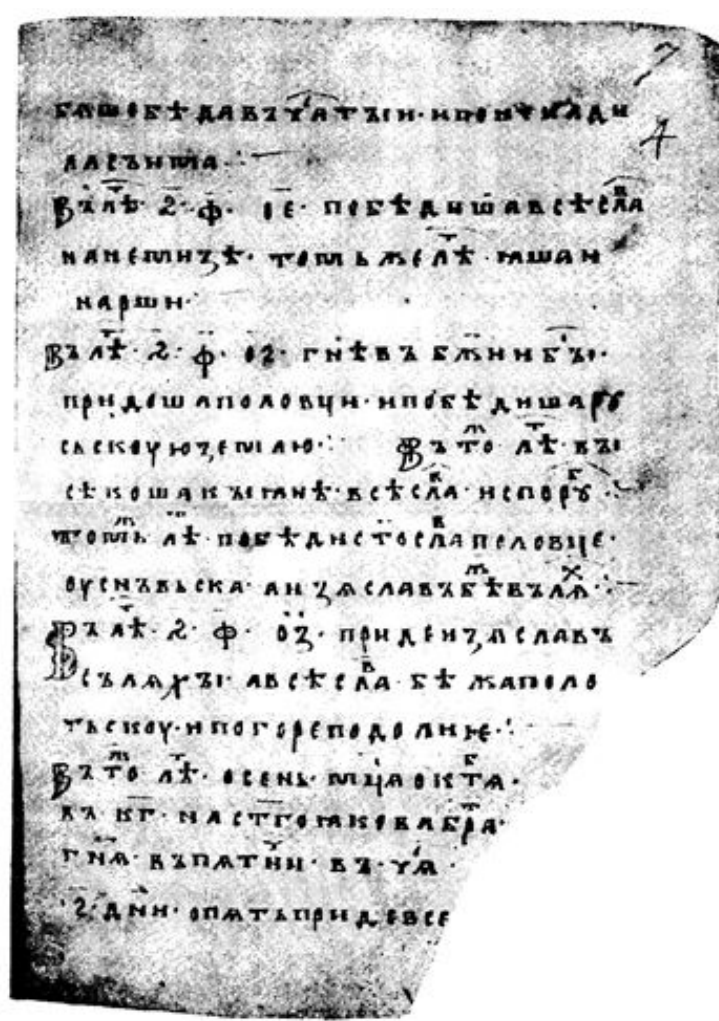 бѧшобѣдавъ үа тъіи · ипоиү младн
ласѣньꙗ ·:
Въ лѣт · ҂ѕ · ф · ое · побѣдишавсѣслав
нанемизѣ · томьжелѣт · ꙗшаи
нарши ·
Въ лѣт · ҂ѕ · ф · оз · гнѣвъ бжиибъі ·
придошаполовци · ипобѣдишару
сьскоуюземлю ·: Въ то лѣт въі
сѣкошакъіꙗнѣ · всѣславⷦ · испорꙋб
томь лѣт · побѣдистославполовце ·
оусновьска · аизѧславъбѣвълѧх ·:
Въ лѣт · ҂ѕ · ф · оз · придеизѧславъ
съляхъі · авсѣславбѣжаполо
тьскоу · ипогореподолиѥ ·:
Въ то лѣт · осень · мцаоктѧб ·
въ кг · настгоꙗковабрата ·
гнѧ · въпѧтнии · въ үа ·
ѕ · дни · опѧтьпридевсе